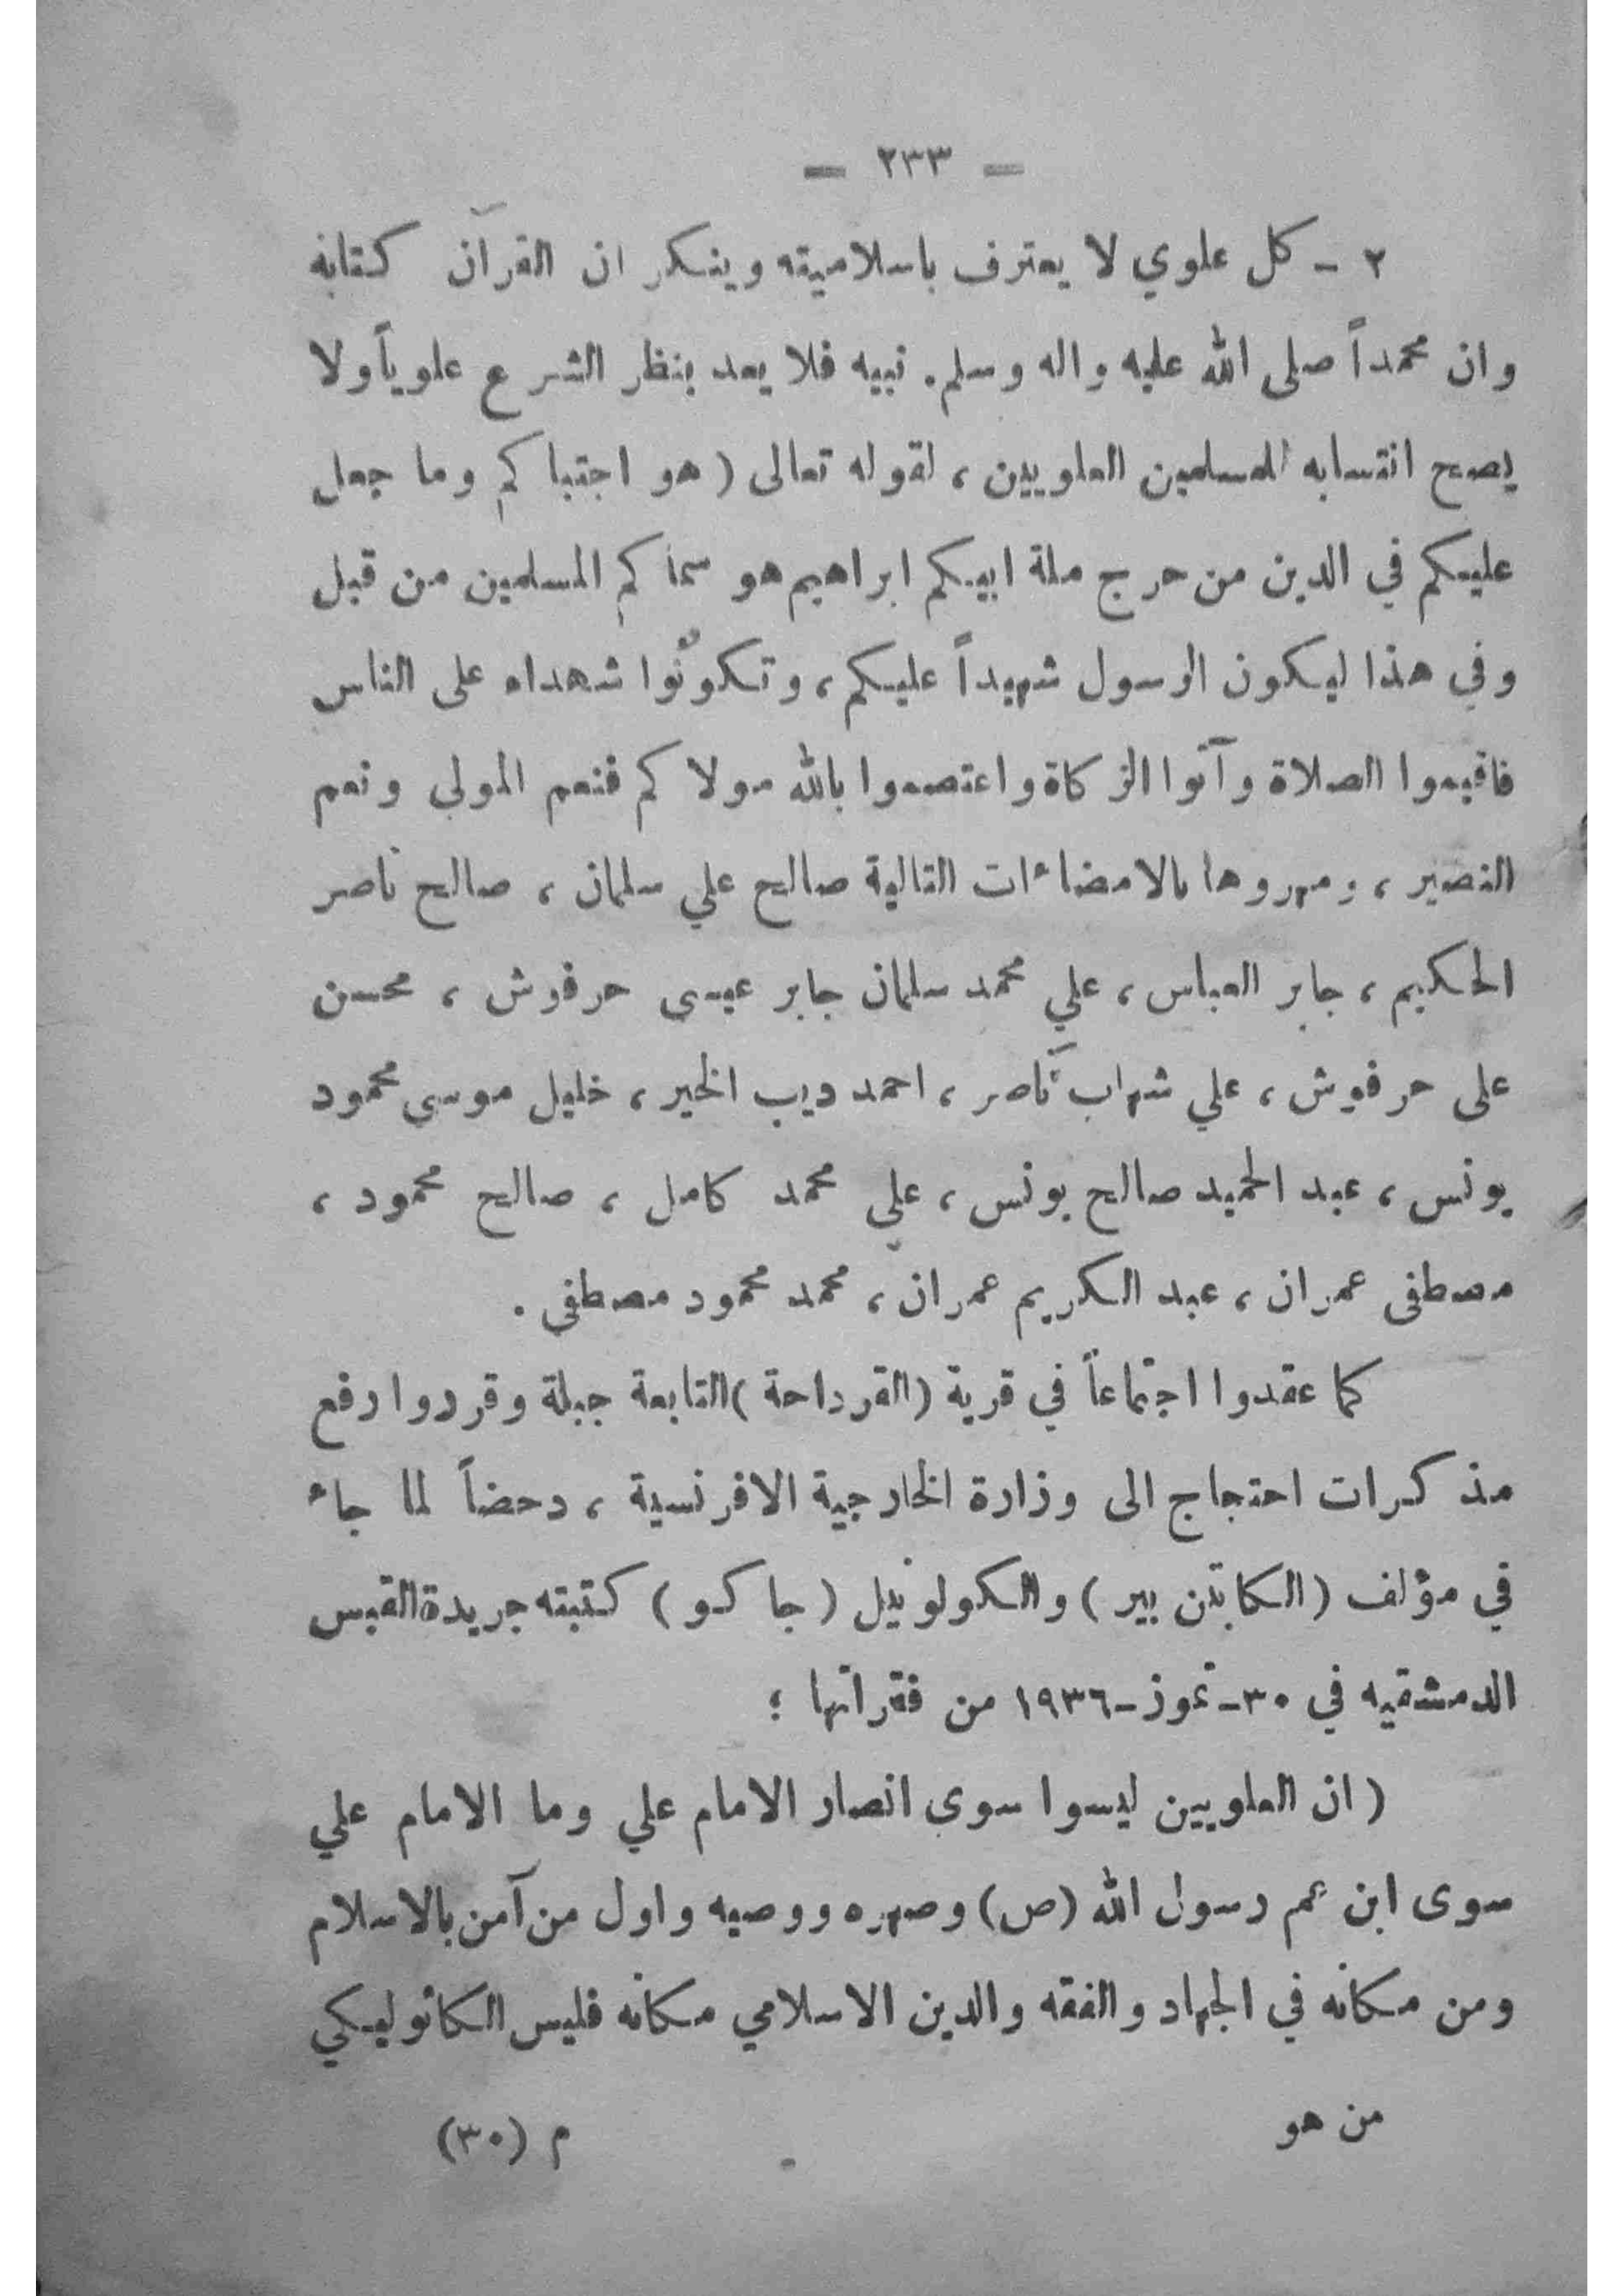 — ٢٣٣ —
٢ - كل علوي لا يعترف باسلاميته وينكر ان القرآن كتابه
وان محمداً صلى الله عليه واله وسلم. نبيه فلا يعد بنظر الشرع علوياً ولا
يصح انتسابه للمسلمين العلويين ، لقوله تعالى ( هو اجتباكم وما جعل
عليكم في الدين من حرج ملة ابيكم ابراهيم هو سماكم المسلمين من قبل
وفي هذا ليكون الرسول شهيداً عليكم ، وتكونوا شهداء على الناس
فاقيموا الصلاة وآتوا الزكاة واعتصموا بالله مولاكم فنعم المولى ونعم
النصير ، ومهروها بالامضاءات التالية صالح علي سلمان ، صالح ناصر
الحكيم ، جابر العباس ، علي محمد سلمان جابر عيسى حرفوش ، محسن
على حرفوش ، علي شهاب ناصر ، احمد ديب الخير ، خليل موسى محمود
يونس ، عبد الحميد صالح يونس ، علي محمد كامل ، صالح محمود ،
مصطفى عمران ، عبد الكريم عمران ، محمد محمود مصطفى .
كما عقدوا اجتماعاً في قرية ( القرداحة ) التابعة جبلة وقرروا رفع
مذكرات احتجاج الى وزارة الخارجية الافرنسية ، دحضاً لما جاء
في مؤلف ( الكابتن بير ) والكولونيل ( جاكو ) كتبته جريدة القبس
الدمشقيه في ٣٠-تموز-١٩٣٦ من فقراتها ؛
( ان العلويين ليسوا سوى انصار الامام علي وما الامام علي
سوى ابن عم رسول الله (ص) وصهره ووصيه واول من آمن بالاسلام
ومن مكانه في الجهاد والفقه والدين الاسلامي مكانه فليس الكاثوليكي
من هو
م (٣٠)